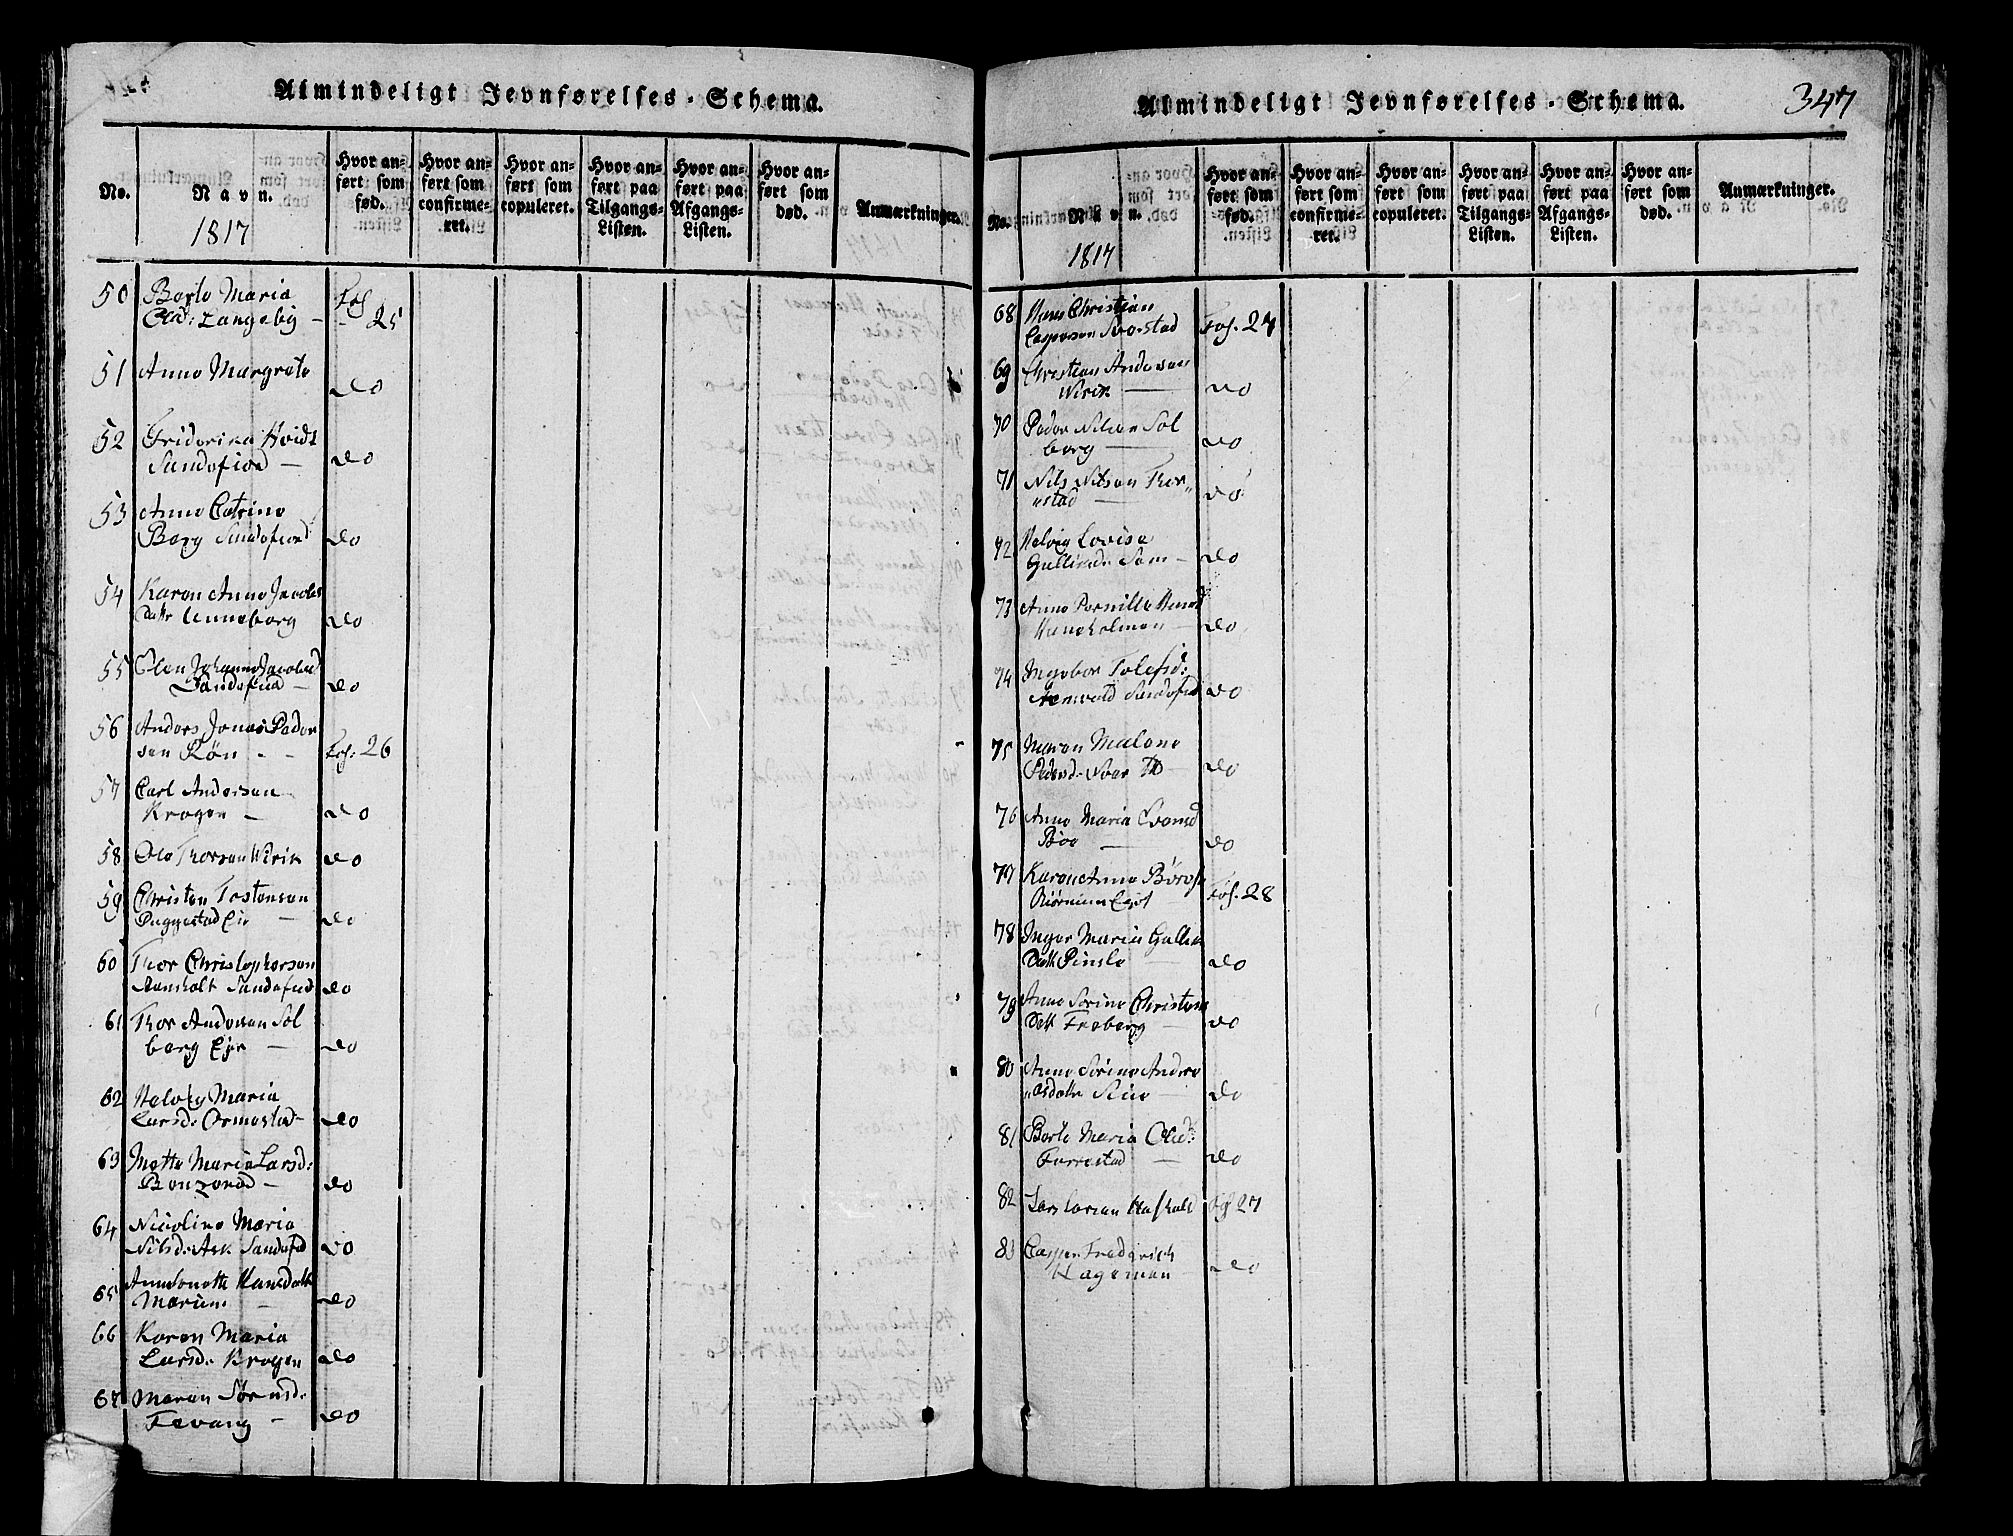 Almindeligt Jevnførelses-Schema.
No.
Navn.
1817
Hvor anført som fød.
Hvor anført som confirmeret.
Hvor anført som copuleret.
Hvor anført paa Tilgangs-Listen.
Hvor anført paa Afgangs-Listen.
Hvor anført som død.
Anmærkninger.
50 Berte Maria Fol
Olsd: Langebÿ - 25
51 Anne Margrete
do
52 Friderica Hvidt
Sandefiord — do
53 Anne Catrine
Berg Sandefiord do
54 Karen Anne Jacobs
Datr Unneberg do
55 Olen Johanne Jacobsd
Sandefiord — do
56 Anders Jonas Peder
sen Røn - - Fol: 26
57 Carl Andersen
Krogen — do
58 Ole Thorsen Wirik do
59 Christen Tostensen
Puggestad Eie — do
60 Thor Christophersen
Aanholt Sandefiord do
61 Thor Andersen Sol
berg Eje — do
62 Helvig Maria
Larsd: Ormestad — do
63 Mette Maria Larsd:
— do
64 Nicoline Maria
Nilsd: Ask Sandefd do
65 Hansdatt
— do
66 Karen Maria
Larsd: Krogen do
67 Maren Sørensd:
Fevang — do
Almindeligt Jevnførelses-Schema.
347
No.
Navn.
1817
Hvor anført som fød.
Hvor anført som confirmeret.
Hvor anført som copuleret.
Hvor anført paa Tilgangs-Listen.
Hvor anført paa Afgangs-Listen.
Hvor anført som død.
Anmærkninger.
68 Hans Christian
Caspersen Fol. 27
69 Christian Andersen
Wirik — do
70 Peder Nilsen Sol
berg — do
71 Nils Nilsen Thor
estad — do
72 Helvig Lovise
Gulliksd: Sem — do
73 Anne Pernille Hansd
Huneholmen — do
74 Ingebor Tolefsd:
Sandefd do
75 Maren Malene
Pedersd: do
76 Anne Maria Evensd
Bøe — do
77 Karen Anne
Fol. 28
78 Inger Maria Gullik
Datt Pinsle — do
79 Anne Sørine Christens
Datt Freberg — do
80 Anne Sørine Andre
asdatter — do
81 Berte Maria Olsd:
Furrestad — do
82 Lars Larsen Hasholt Fol 27
83 Casper Frederich
Hageman do